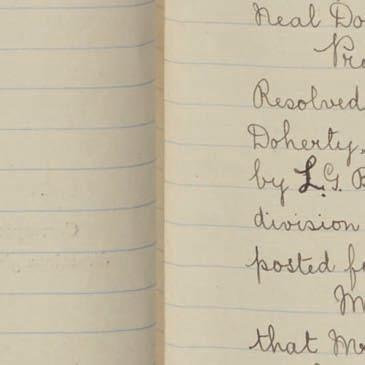 Neal Do
Pro
Resolved
Doherty,
by L.G. B
division
posted fo
M
that Mr